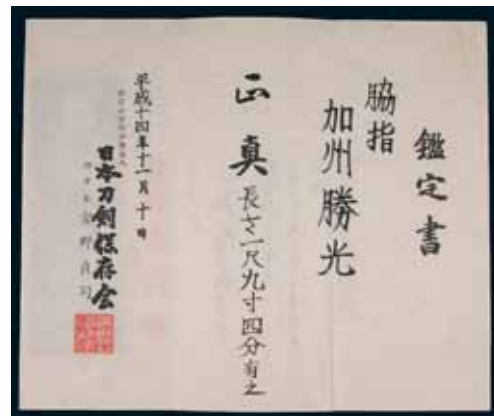 鑑定書
脇指
加州勝光
正真 長さ一尺九寸四分有之
平成十四年十一月十日
日本刀剣保存会